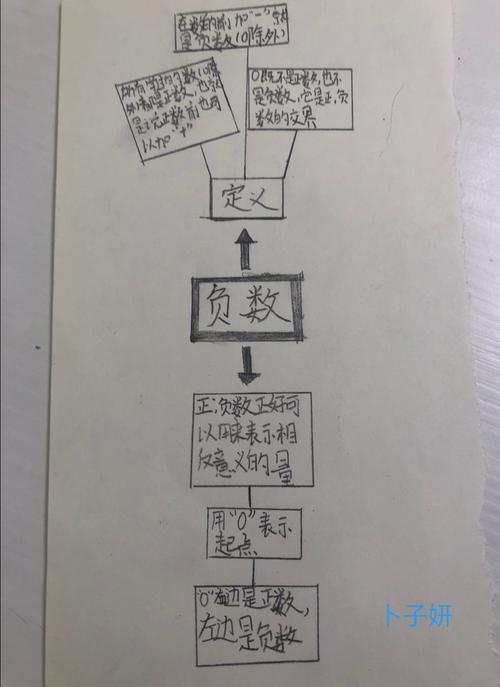 在数的前加"-"就
是负数(0除外)
所有学过的数(0除
外)都是正数,也就
是说正数前也可
以加"+"
0既不是正数,也不
是负数,它是正、负
数的交界
定义
负数
正、负数正好可
以用来表示相
反意义的量
用"0"表示
起点
"0"右边是正数,
左边是负数
卜子妍